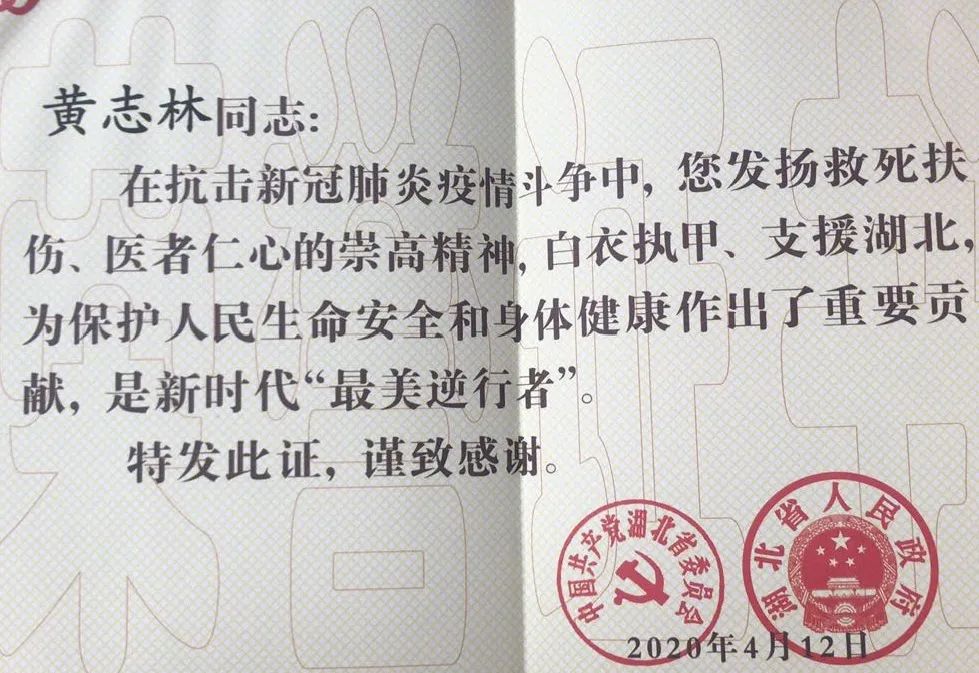 黄志林同志:
在抗击新冠肺炎疫情斗争中，您发扬救死扶
伤、医者仁心的崇高精神，白衣执甲、支援湖北，
为保护人民生命安全和身体健康作出了重要贡
献，是新时代“最美逆行者”。
特发此证，谨致感谢。
中国共产党湖北省委员会
湖北省人民政府
2020年4月12日